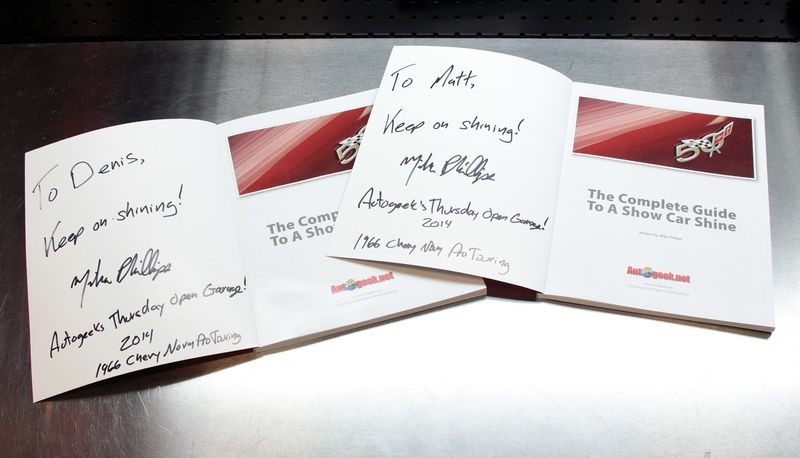 To Denis,
Keep on shining!
Mike Phillips
Autogeek's Thursday Open Garage!
2014
1966 Chevy Nova ProTouring
The Comple
To A Show
To Matt,
Keep on shining!
Mike Phillips
Autogeek's Thursday Open Garage!
2014
1966 Chevy Nova ProTouring
50
The Complete Guide
To A Show Car Shine
Written by: Mike Phillips
Autogeek.net
Autogeek.net